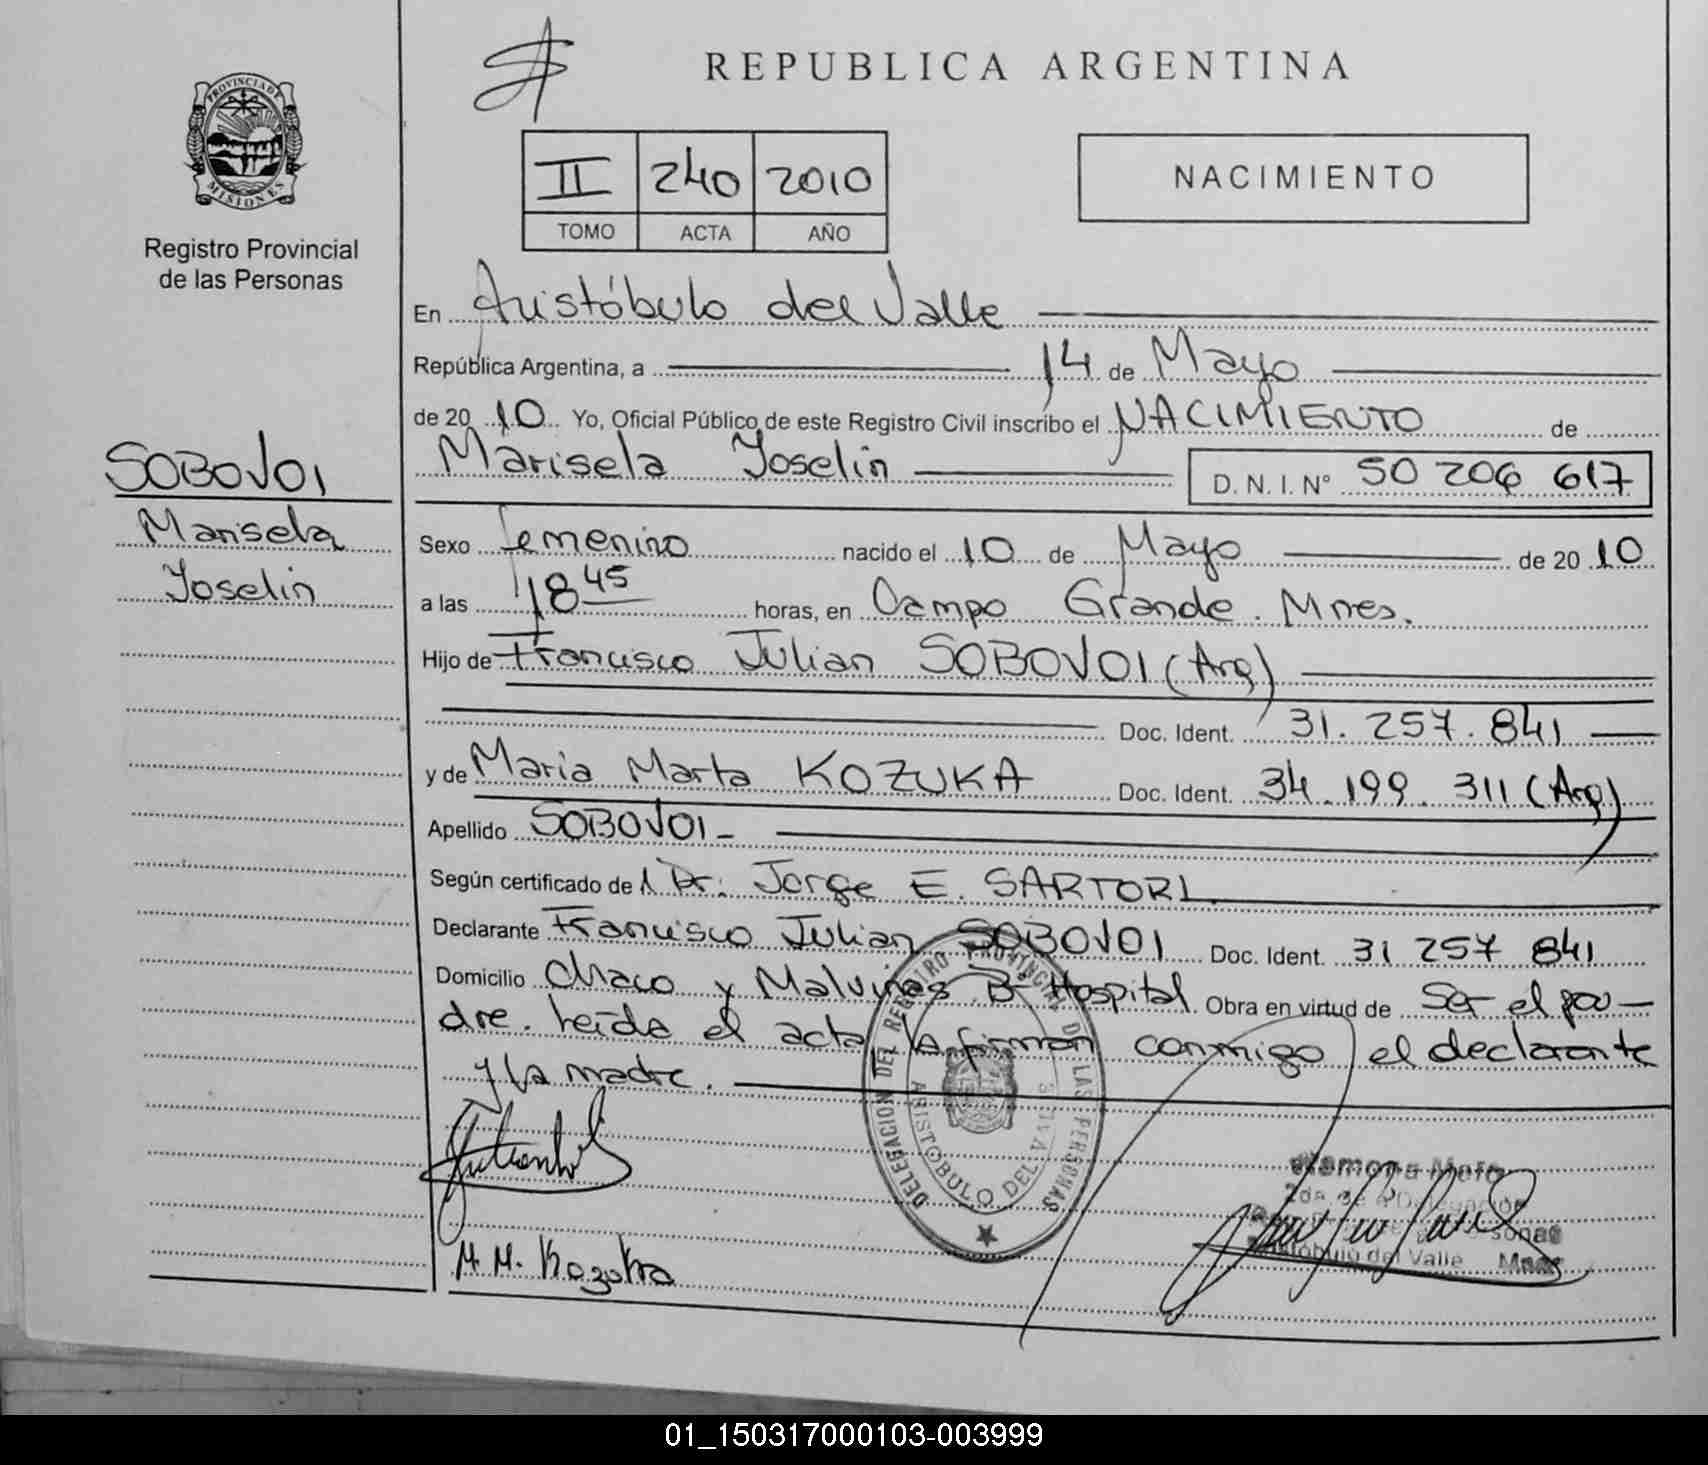 PROVINCIA DE
MISIONES
Registro Provincial
de las Personas
REPUBLICA ARGENTINA
II 240 2010
TOMO ACTA AÑO
NACIMIENTO
En Aristóbulo del Valle
República Argentina, a 14 de Mayo
de 2010 Yo, Oficial Público de este Registro Civil inscribo el NACIMIENTO de
SOBOVOI
Marisela Yoselin D. N. I. N° 50 206 617
Marisela
Sexo femenino nacido el 10 de Mayo de 2010
Yoselin
a las 18 45 horas, en Campo Grande. Mnes.
Hijo de Francisco Julian SOBOVOI (Arg)
Doc. Ident. 31. 257. 841
y de Maria Marta KOZUKA Doc. Ident. 34. 199. 311 (Arg)
Apellido SOBOVOI
Según certificado del Dr: Jorge E. SARTORI
Declarante Francisco Julian SOBOVOI Doc. Ident. 31 257 841
Domicilio Chaco y Malvinas B° Hospital Obra en virtud de Ser el pa-
dre. Leída el acta, la firman conmigo el declarante
y la madre.
DELEGACION DEL REGISTRO PROVINCIAL DE LAS PERSONAS
ARISTOBULO DEL VALLE
Ramona
Aristóbulo del Valle Mnes
M. M. Kozuka
01_150317000103-003999